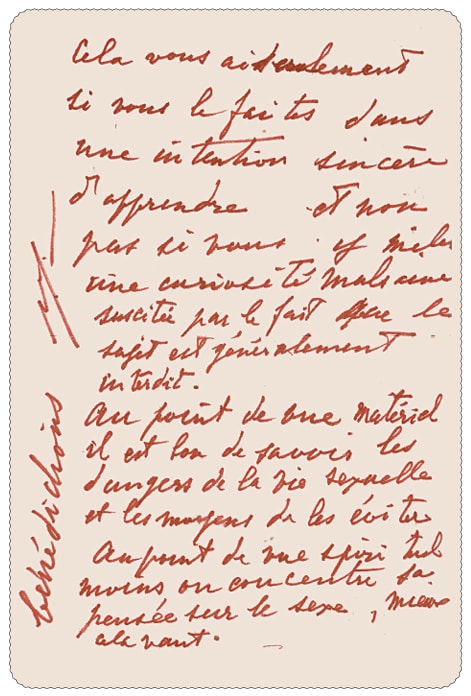 Cela vous aid seulement
si vous le faites dans
une intention sincère
d'apprendre et non
pas si vous y mêlez
une curiosité malsaine
suscitée par le fait que le
sujet est généralement
interdit.
Au point de vue matériel
il est bon de savoir les
dangers de la vie sexuelle
et les moyens de les éviter
Au point de vue spirituel
moins on concentre sa
pensée sur le sexe, mieux
cela vaut.
bénédictions